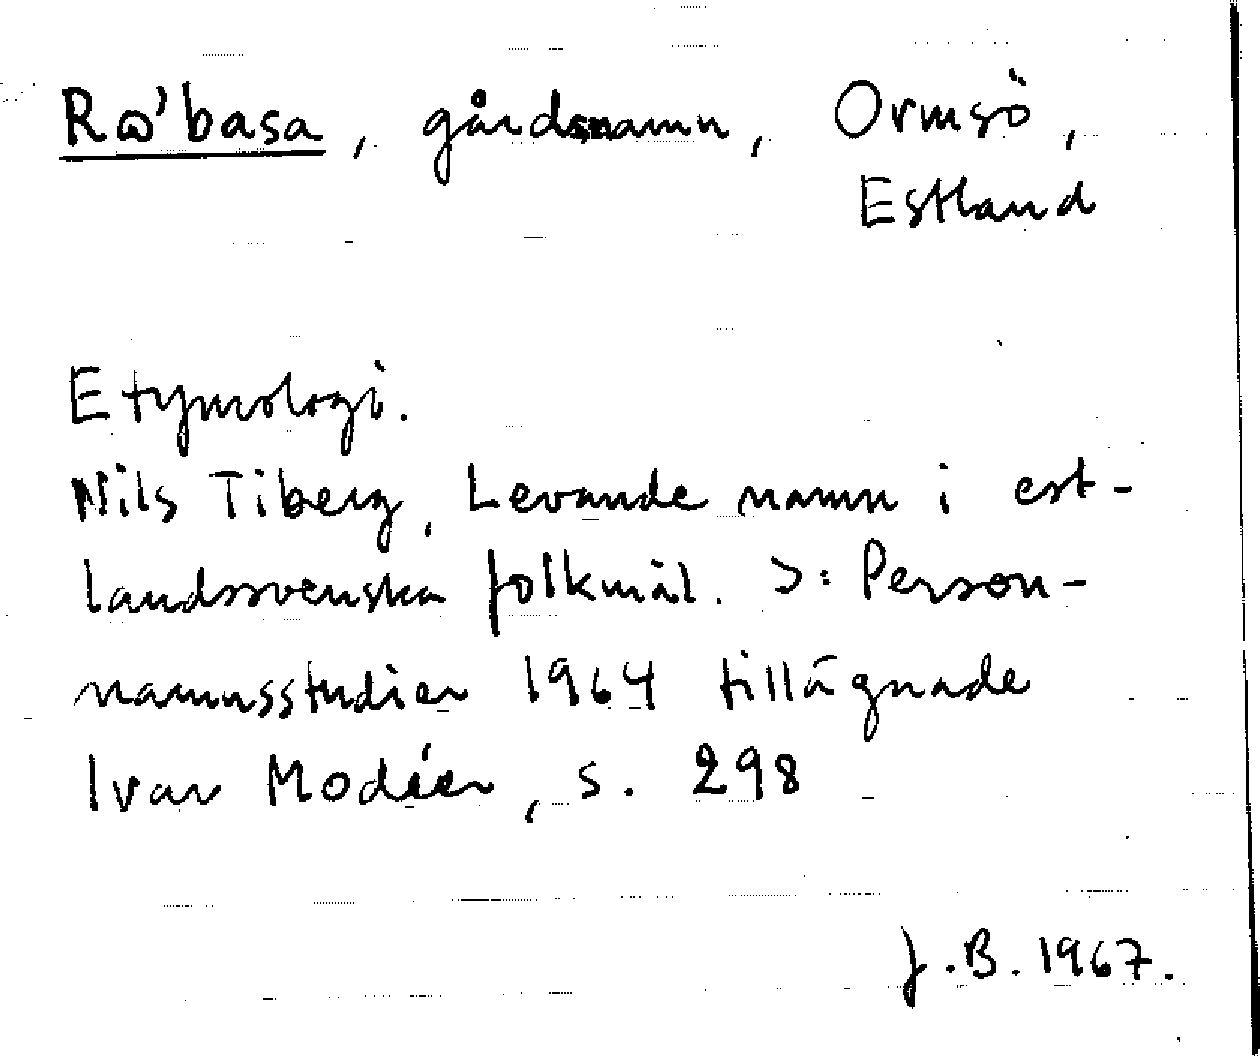 Rɷ'basa, gårdsnamn, Ormsö,
Estland
Etymologi.
Nils Tiberg, Levande namn i est-
landssvenska folkmål. I: Person-
namnsstudier 1964 tillägnade
Ivar Modéer, s. 298
J.B. 1967.